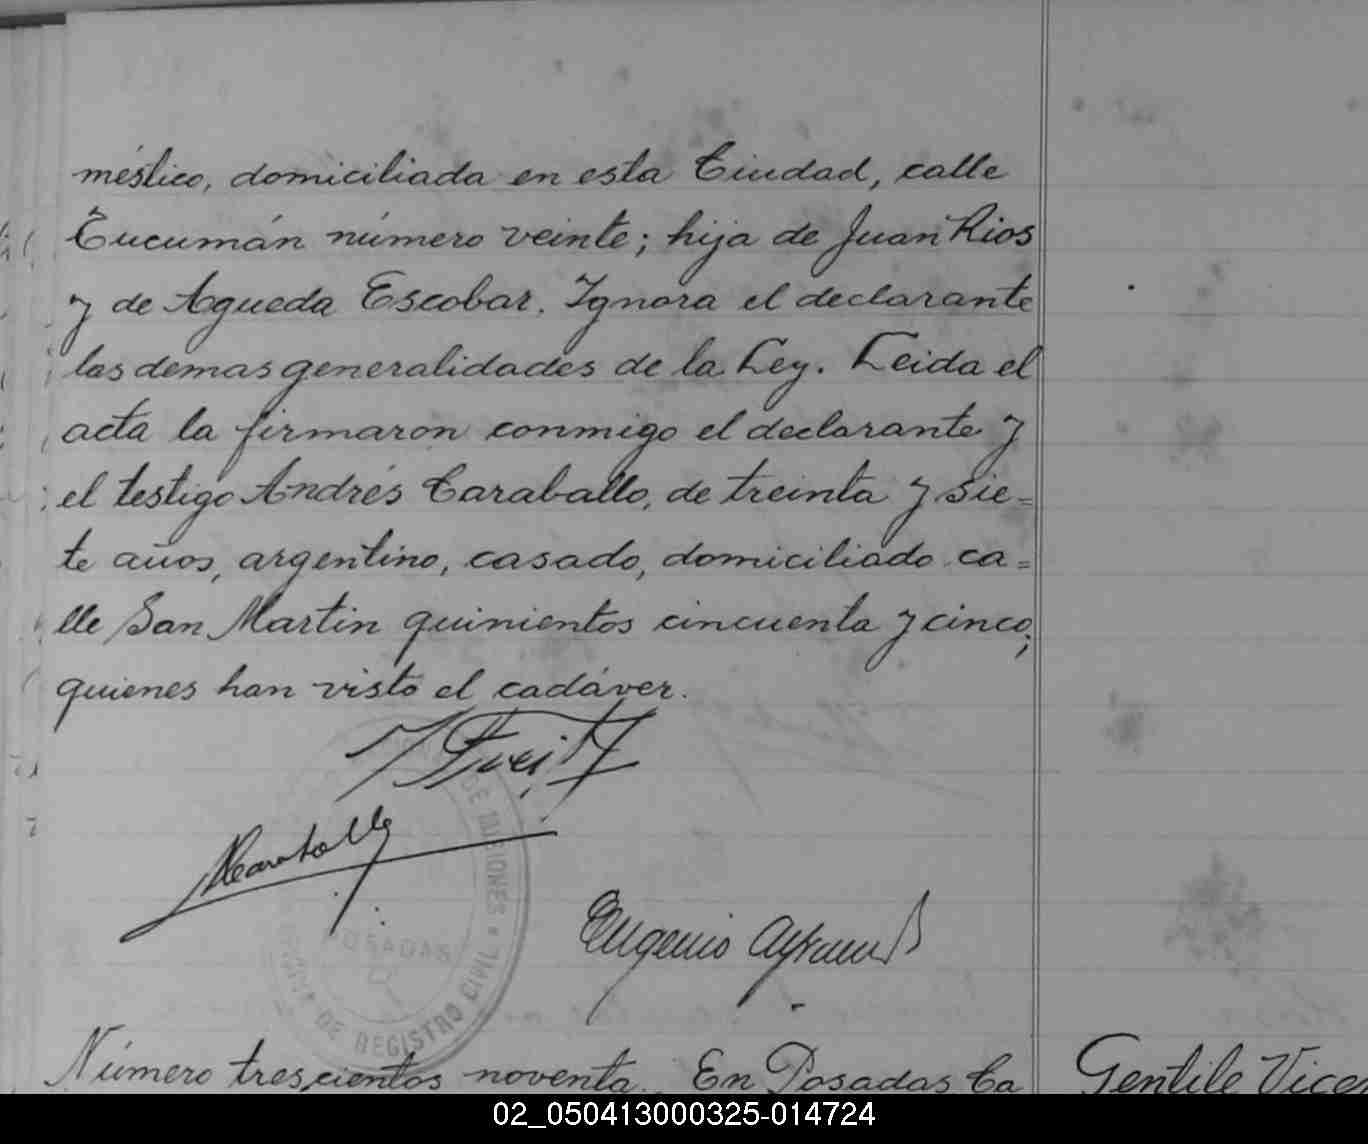 méstico, domiciliada en esta Ciudad, calle
Tucumán número veinte; hija de Juan Rios
y de Agueda Escobar. Ignora el declarante
las demas generalidades de la Ley. Leida el
acta la firmaron conmigo el declarante y
el testigo Andrés Caraballo, de treinta y sie=
te años, argentino, casado, domiciliado ca=
lle San Martin quinientos cincuenta y cinco;
quienes han visto el cadáver.
ACaraballo
DE MISIONES
POSADAS
DE REGISTRO CIVIL
Eugenio
Número trescientos noventa. En Posadas Ca
Gentile Vice
02_050413000325-014724